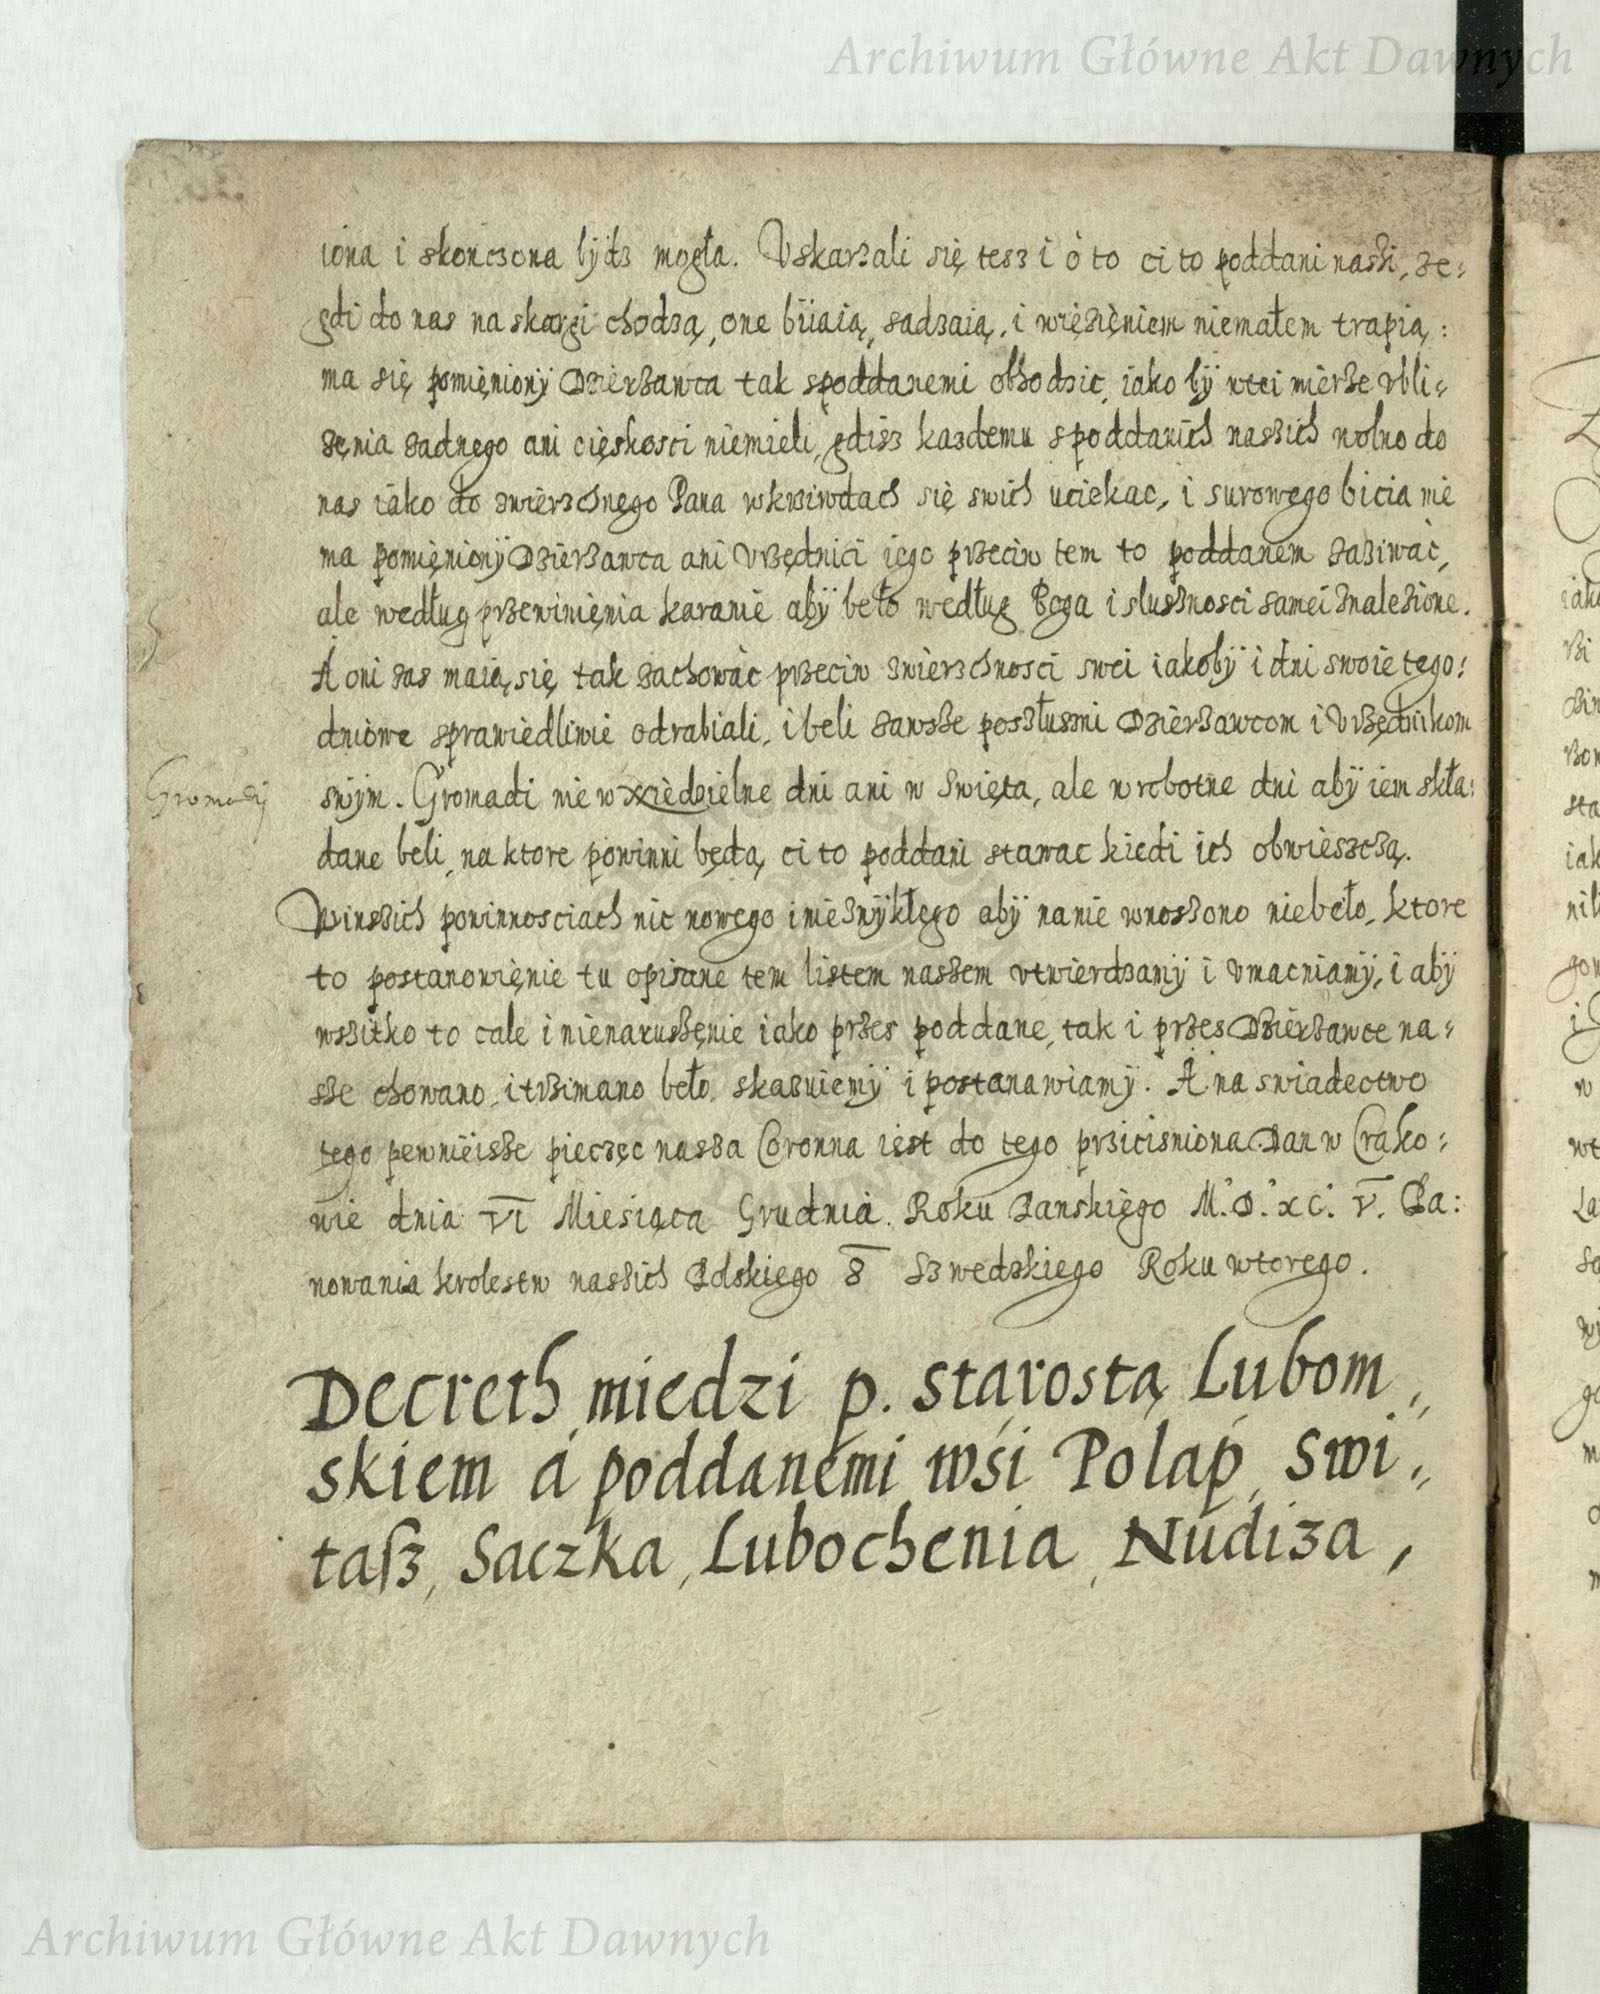 Archiwum Główne Akt Dawnych
iona i skończona bÿdz mogła. Vskarzali się tesz i o to ci to poddani naszi, ze-
gdi do nas na skargi chodzą, one biiaią, sadzaią, i więzięniem niemałem trapią:
ma się pomięnionÿ Dzierzawca tak spoddanemi obhodzic, iako bÿ wtei mierze vbli-
zęnia zadnego ani cięskosci niemieli, gdisz kazdemu spoddanich naszich wolno do
nas iako do zwierzchnego Pana wkrziwdach się swich uciekac, i surowego bicia nie
ma pomięnionÿ Dzierzawca ani Vrzędnici iego przeciw tem to poddanem zaziwac,
ale według przewinięnia karanie abÿ beło według Boga i slusznosci samei znalezione.
A oni zas maią się tak zachowac przeciw zwierzchnosci swei iakobÿ i dni swoie tego:
dniowe sprawiedliwie odrabiali, i beli zawsze poszłuszni Dzierzawcom i Vrzędnikom
swÿm. Gromadi nie w niedzielne dni ani w swięta, ale w robotne dni abÿ iem skła:
Gromadÿ
dane beli, na ktore powinni będą ci to poddani stawac kiedi ich obwieszczą.
Winszich powinnosciach nic nowego i niezwÿkłego abÿ nanie wnoszono niebeło, ktore
to postanowięnie tu opisane tem listem naszem vtwierdzamÿ i vmacniamÿ, i abÿ
wszitko to cale i nienaruszęnie iako przes poddane, tak i przes Dzierzawce na-
sze chowano, i trzimano beło, skazuiemÿ i postanawiamÿ. A na swiadectwo
tego pewnieisze pieczęc nasza Coronna iest do tego prziciśniona Dan w Crako:
wie dnia VI Miesiąca Grudnia Roku Panskięgo M.D.XC.V. Pa:
nowania krolestw naszich Polskiego 8 Szwedzkiego Roku wtorego.
Decreth miedzi p. starostą Lubom„
skiem a poddanemi wśi Polap, Swi„
tasz, Saczka, Lubochenia, Nudiza,
Archiwum Główne Akt Dawnych